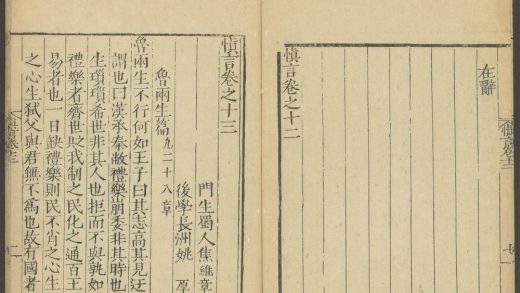 在辭
慎言卷之十二
慎言卷之十三
門生蜀人焦維章
後學長洲姚
魯兩生篇凡二十八章
魯兩生不行何如王子曰其志高其見迂
謂也曰漢承秦敝禮樂崩委非其時也
生瓆瓆希世非其人也拒而不與孰如
禮樂者齊世政我制之民化之通百王
易者也一日缺禮樂則民不肖之心生
之心生弒父與君無不為也故有國者